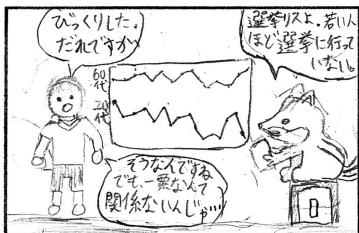 びっくりした。
だれですか
選挙リスよ。若い人
ほど選挙に行って
いない。
60
代
20
代
そうなんですね
でも、一票なんて
関係ないんじゃ…